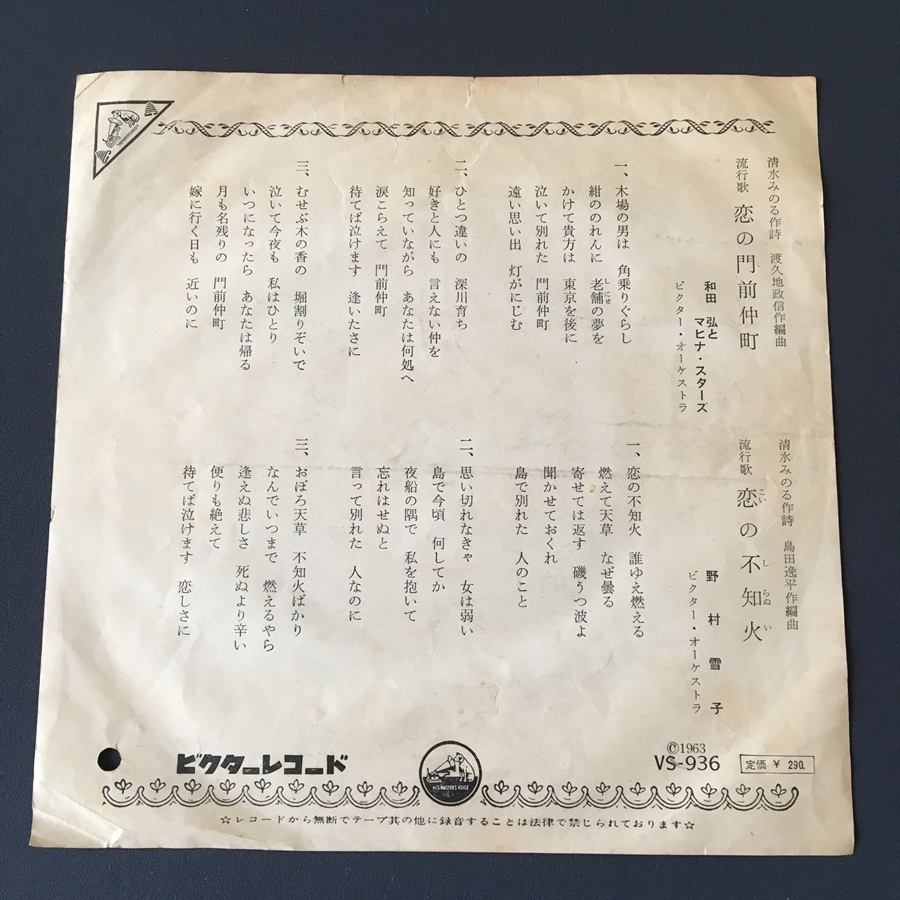 清水みのる作詩 渡久地政信作編曲
流行歌 恋の門前仲町
和田 弘と
マヒナ・スターズ
ビクター・オーケストラ
一、木場の男は 角乗りぐらし
紺ののれんに 老舗の夢を
しにせ
かけて貴方は 東京を後に
泣いて別れた 門前仲町
遠い思い出 灯がにじむ
二、ひとつ違いの 深川育ち
好きと人にも 言えない仲を
知っていながら あなたは何処へ
涙こらえて 門前仲町
待てば泣けます 逢いたさに
三、むせぶ木の香の 堀割りぞいで
泣いて今夜も 私はひとり
いつになったら あなたは帰る
月も名残りの 門前仲町
嫁に行く日も 近いのに
清水みのる作詩 島田逸平作編曲
流行歌 恋の不知火
こい しらぬい
野村雪子
ビクター・オーケストラ
一、恋の不知火 誰ゆえ燃える
燃えて天草 なぜ曇る
寄せては返す 磯うつ波よ
聞かせておくれ
島で別れた 人のこと
二、思い切れなきゃ 女は弱い
島で今頃 何してか
夜船の隅で 私を抱いて
忘れはせぬと
言って別れた 人なのに
三、おぼろ天草 不知火ばかり
なんでいつまで 燃えるやら
逢えぬ悲しさ 死ぬより辛い
便りも絶えて
待てば泣けます 恋しさに
ビクターレコード
HIS MASTER'S VOICE
©1963
VS-936
定価 ¥ 290.
☆レコードから無断でテープ其の他に録音することは法律で禁じられております☆